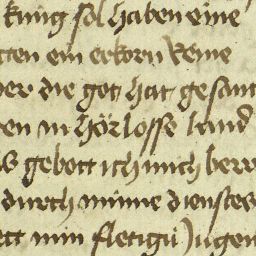 kung sol haben eine
tten ein erkorn Reine
der die got hat gesant
en in hörlosse land
s gebott ich mich berr
durch minne dienstes
ett min fletigü Jugen